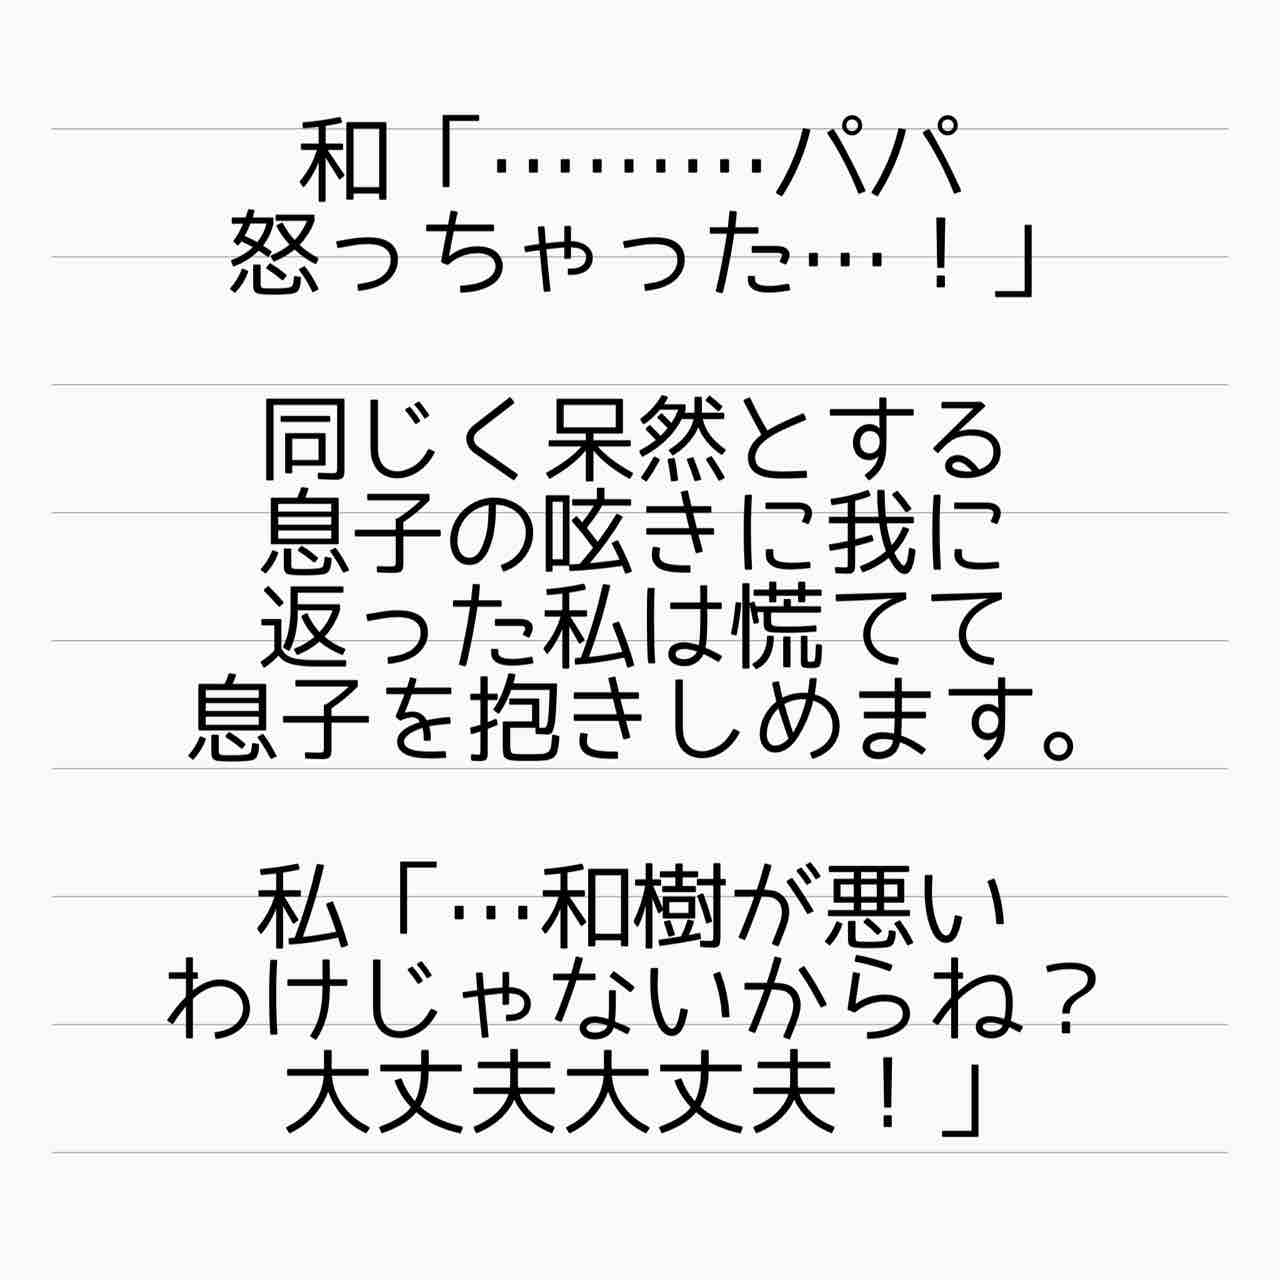 和「………パパ
怒っちゃった…！」
同じく呆然とする
息子の呟きに我に
返った私は慌てて
息子を抱きしめます。
私「…和樹が悪い
わけじゃないからね？
大丈夫大丈夫！」